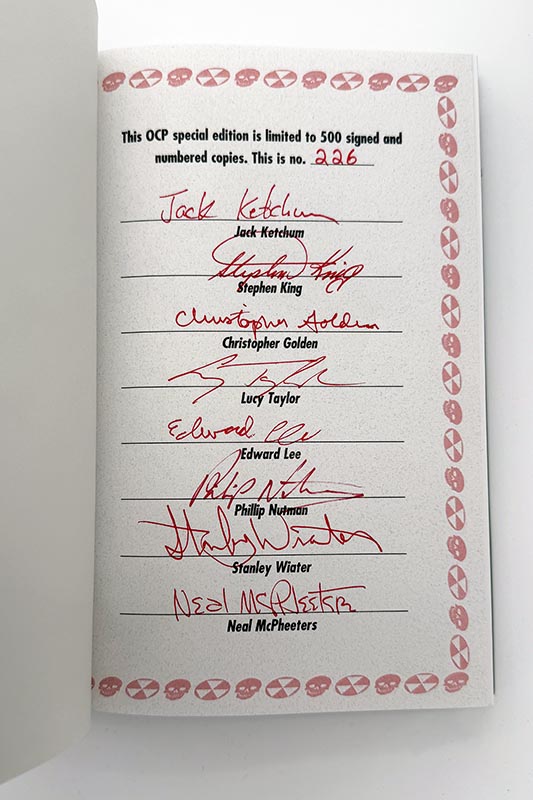 This OCP special edition is limited to 500 signed and
numbered copies. This is no. 226
Jack Ketchum
Jack Ketchum
Stephen King
Stephen King
Christopher Golden
Christopher Golden
Lucy Taylor
Edward Lee
Edward Lee
Philip Nutman
Phillip Nutman
Stanley Wiater
Stanley Wiater
Neal McPheeters
Neal McPheeters